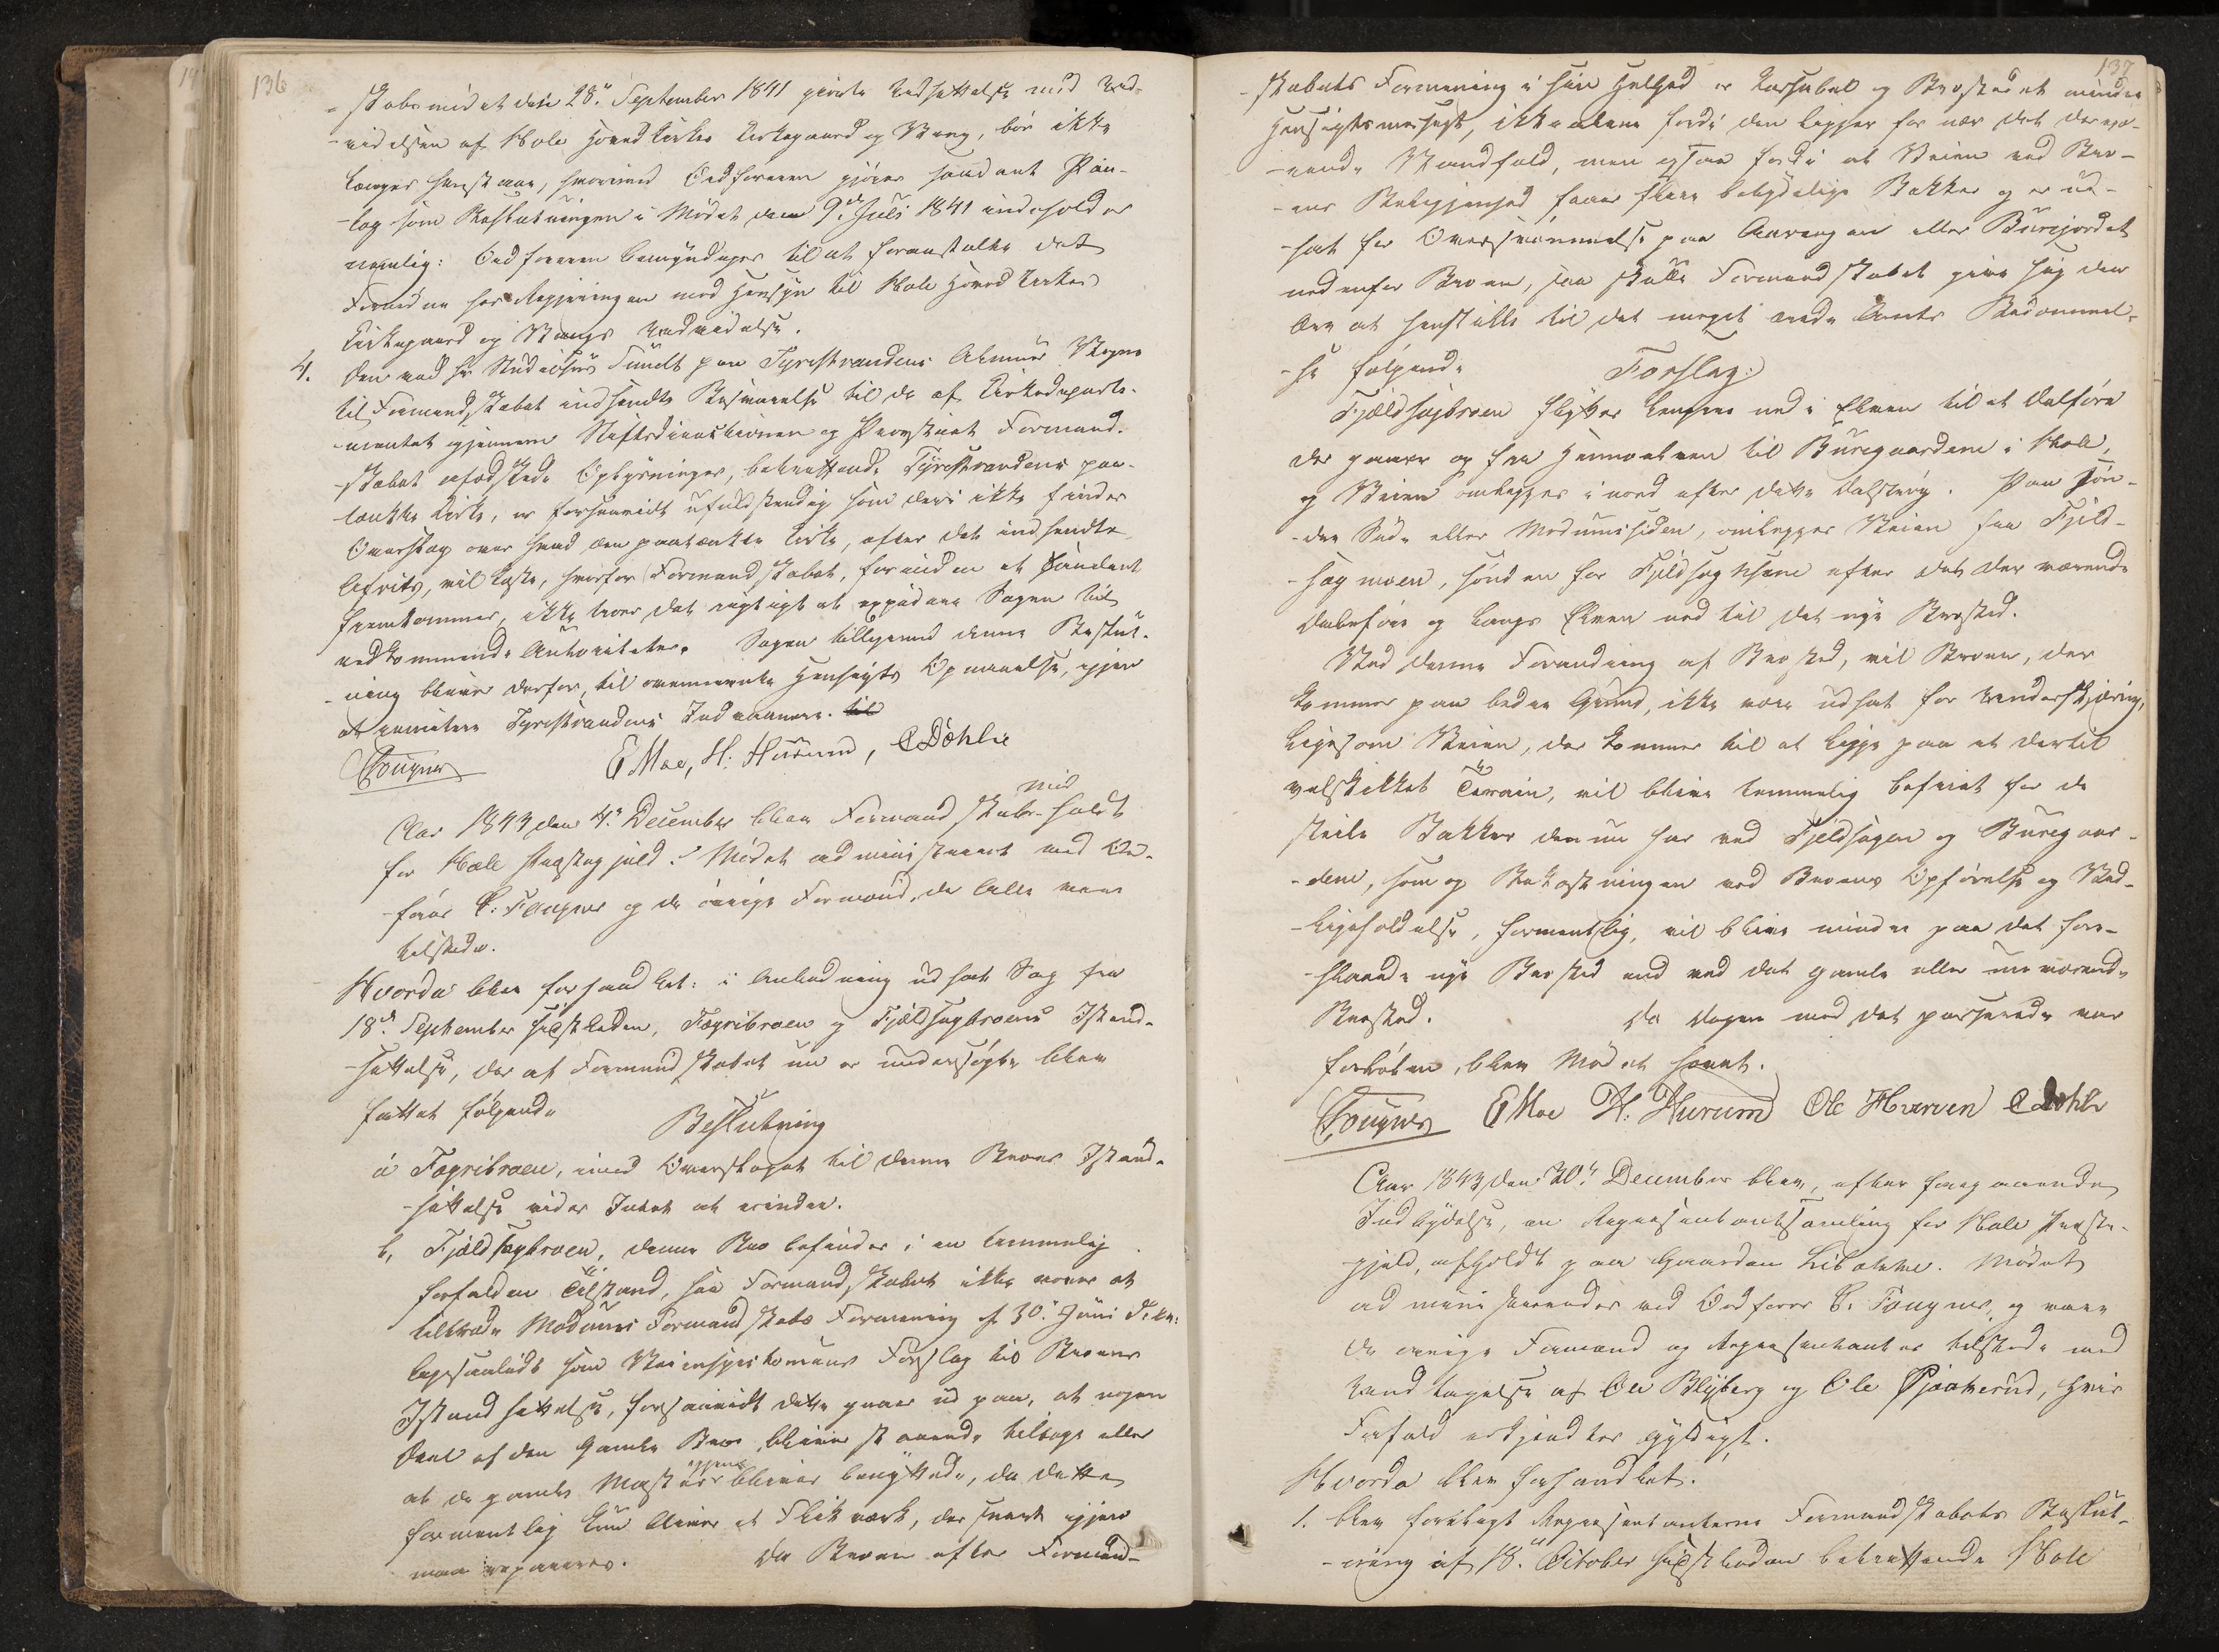 136
-skabsmødet den 28.' September 1841 givne Udsættelse med Ud-
-videlsen af Hole Hovedkirkes Kirkegaard og Vang, bør ikke
længer henstaae, hvorimod Ordføreren gjører saadant Paa-
-læg som Beslutningen i Mødet den 9.de Juli 1841 indeholder
nemlig: Ordføreren bemyndiges til at foranstalte det
Fornødne hos Regjeringen med Hensyn til Hole Hovedkirkes
Kirkegaard og Vangs Udvidelse.
4. Den ved Hr Studiosus Sundt paa Tyristrandens Almues Vegne
til Formandskabet indsendte Besvarelse til de af Kirkedeparte-
-mentet gjennem Stiftsdirectionen og Provstiet Formand-
-skabet affordrede Oplysninger, betreffende Tyristrandens paa-
tænkte Kirke, er forsaavidt ufuldstændig som deri ikke findes
Overslag over hvad den paatænkte Kirke, efter det indsendte
Afrids, vil koste, hvorfor Formandskabet, forinden et saadant
fremkommer, ikke troer det rigtigt at expedere Sagen til
vedkommende Autoriteter. Sagen tilligemed denne Beslut-
-ning bliver derfor, til ovennævnte Hensigts Opnaaelse, igjen
at remittere Tyristrandens Indvaanere. til
C Fougner E Moe, H: Hurum, C Døhlie
Aar 1843 den 4.' December blev Formandskabs-møde holdt
for Hole Præstegjæld. Mødet administreret ved Ord-
-fører C: Fougner og de øvrige Formænd, der alle vare
tilstede.
Hvorda blev forhandlet: i Anledning udsat Sag fra
18.de September sidstleden, Fægribroen og Fjeldsagbroens Istand-
-sættelse, der af Formandskabet nu er undersøgte blev
fattet følgende
Beslutning
a Fægribroen, imod Overslaget til denne Broes Istand-
-sættelse vides Intet at erindre.
b, Fjeldsagbroen, denne Bro befindes i en temmelig
forfalden Tilstand, saa Formandskabet ikke vover at
tiltræde Modums Formandskabs Formening af 30.' Juni d. A.
ligesaalidt som Veiinspecteurens Forslag til Broens
Istandsættelse, forsaavidt dette gaaer ud paa, at nogen
Deel af den gamle Bro bliver staaende tilbage eller
at de gamle Materialier igjen bliver benyttede, da dette
formentlig kun bliver et Flikværk, der snart igjen
maa repareres. Da Broen efter Formand-
137
-skabets Formening i sin Helhed er kassabel og Brostedet mindre
Hensigtsmæssigt, ikke alene fordi den ligger for nær det dervæ-
-rende Vandfald, men ogsaa fordi at Veien ved Bro-
-ens Beliggenhed faaer flere betydelige Bakker og er ud-
-sat for Oversvømmelse paa Aavangen eller Burejordet
nedenfor Broen, saa skulle Formandskabet give sig den
Ære at henstille til det meget ærede Amts Bedømmel-
-se følgende Forslag:
Fjeldsagbroen flyttes længere ned i Elven til et Dalføre
der gaaer op fra Hennoelven til Buregaardene i Hole,
og Veien omlegges i nord efter dette Dalstrøg. Paa Søn-
-dre Side eller Modumssiden, omlegges Veien fra Fjeld-
-sagmoen, sønden for Fjeldsaghusene efter det derværende
Dalføre og langs Elven ned til det nye Brosted.
Ved denne Forandring af Brosted, vil Broen, der
kommer paa bedre Grund, ikke være udsat for Underskjæring,
ligesom Veien, der kommer til at ligge paa et dertil
velskikket Terrain, vil blive temmelig befriet for de
steile Bakker den nu har ved Fjeldsagen og Buregaar-
-dene, som og Bekostningen ved Broens Opførelse og Ved-
-ligeholdelse, formentlig, vil blive mindre paa det fore-
-slaaede nye Brosted end ved det gamle eller nuværende
Brosted. Da Dagen med det passerede var
forløben, blev Mødet hævet.
C Fougner E Moe H. Hurum Ole Hverven C Døhle
Aar 1843 den 30.' December blev, efter foregaaende
Indbydelse, en Repræsentantsamling for Hole Præste-
-gjeld, afholdt paa Gaarden Libakke. Mødet
administreredes ved Ordfører C. Fougner, og vare
de øvrige Formænd og Repræsentanter tilstede med
Undtagelse af Ole Blyberg og Ole Gjøakerud, hvis
Forfald erkjendtes gyldigt.
Hvorda blev forhandlet:
1. blev forelagt Repræsentanterne Formandskabets Beslut-
-ning af 18.de October sidstleden betreffende Hole